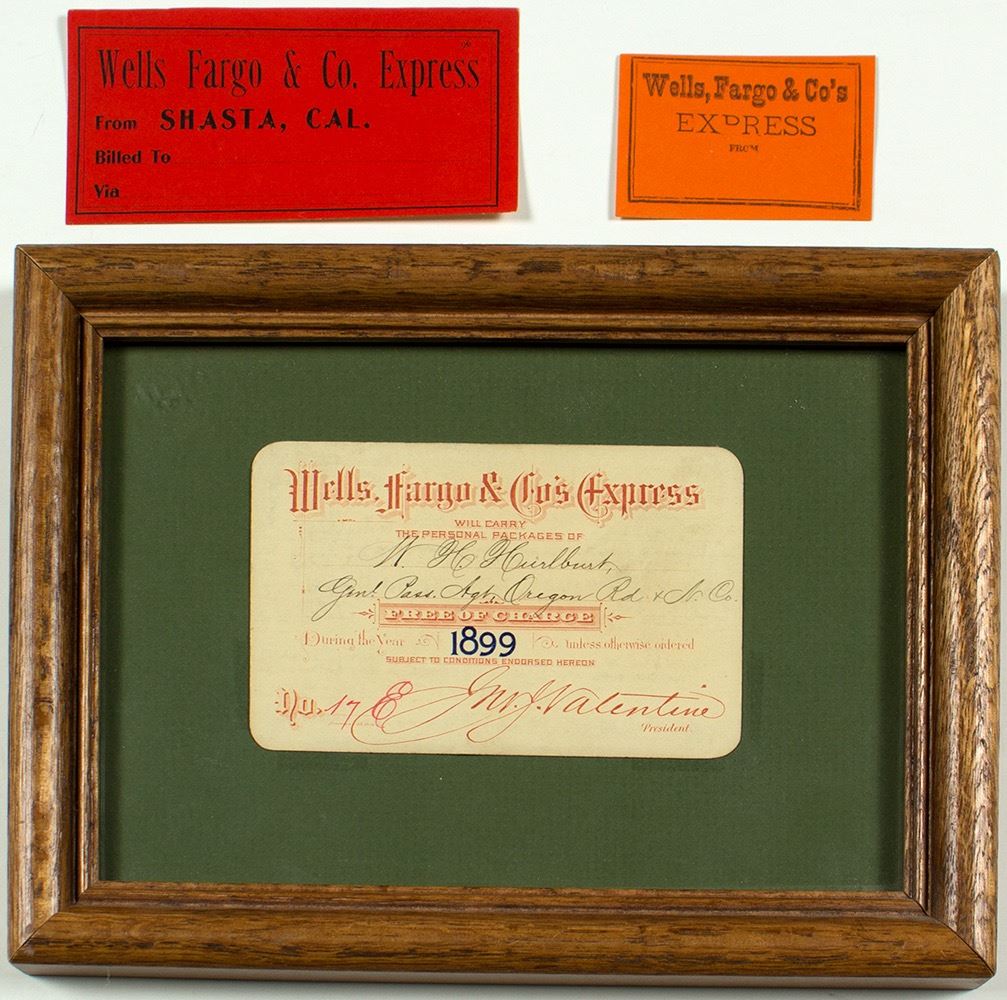 Wells Fargo & Co. Express
From SHASTA, CAL.
Billed To
Via
Wells, Fargo & Co's
EXPRESS
FROM
Wells, Fargo & Co's Express
WILL CARRY
THE PERSONAL PACKAGES OF
W. H. Hurlburt,
Genl. Pass. Agt, Oregon Rd & N. Co.
FREE OF CHARGE
During the Year 1899 unless otherwise ordered
SUBJECT TO CONDITIONS ENDORSED HEREON
No. 17 E Jno. J. Valentine
President.